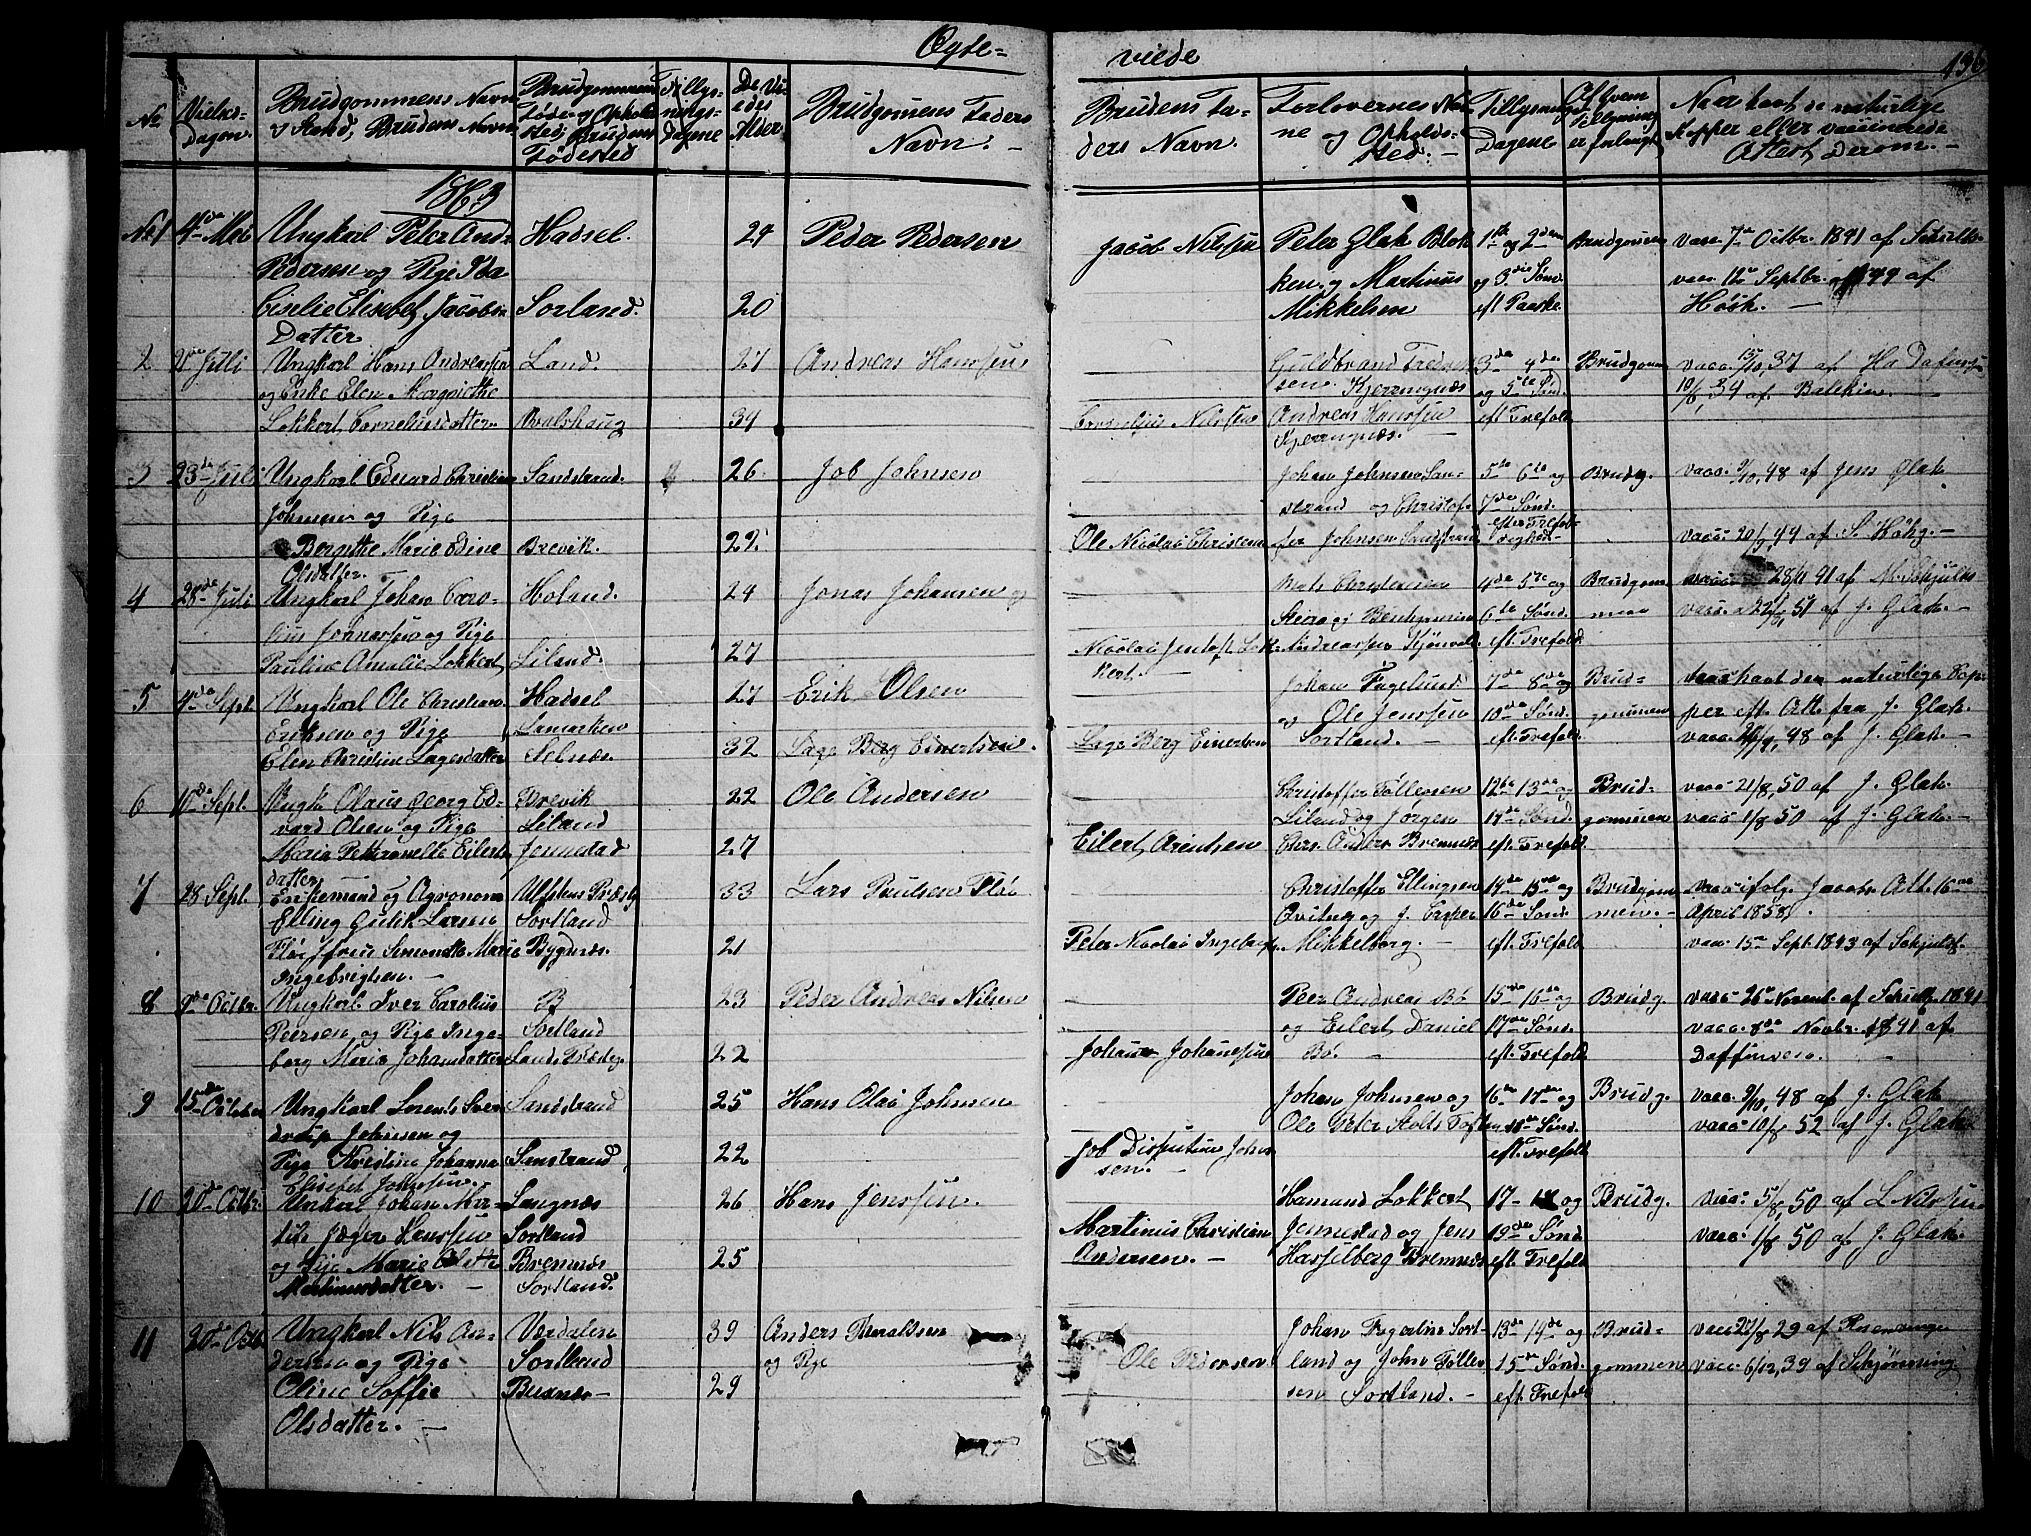 Ægte=
viede
136
No
Vielses-
Dagen.
Brudgommens Navn
& Stand, Brudens Navn
Brudgommens
Føde- og Opholds
Sted; Brudens
Fødested
Tillys-
nings-
Dagene
De Vi-
edes
Alder
Brudgomens Faders
Navn: -
Brudens Fa-
ders Navn.
Forlovernes Nav-
ne og Opholds-
Sted: -
Tillysnings
Dagene
Af hvem
Tillysning
er forlangt
Naar havt de naturlige
Kopper eller vaccinerede
Attest derom. -
1863
No 1
4de Mai
Ungkarl Peter Andr
Pedersen og Pige Ida
Ceselie Elisabet Jacobs
Datter
Hadsel.
Sorland.
24
20
Peder Pedersen
Jacob Nilssen
Peter Glak Blok
ken og Martinus
Mikkelsen
1ste og 2den
og 3die Sønd.
eft Paaske.
Brudgomen
vacc. 7de Octbr. 1841 af
vacc. 12te Septbr. 1844 af
Høgh. -
2
2de Juli
Ungkarl Hans Andreassen
og Enke Elen Margrethe
Lokkert, Corneliusdatter
Land.
Kvalshaug
27
34
Andreas Hanssen
Cornelius Nilssen
Guldbrand Fredrik
sen. Kjerringnæs
Andreas Hanssen
Kjerringnæs. -
3de 4de
og 5te Sønd.
eft Trefold
Brudgom
vacc. 15/10, 37 af
10/8, 34 af
3
23de Juli
Ungkarl Edvard Christian
Johnsen og Pige
Bergithe Marie Edine
Olsdatter.
Sandstrand.
Brevik.
26.
22.
Job Johnsen
Ole Nicolai Christensen
Johan Johnsen San-
strand og Christof-
fer Johnsen Sandstrand
5te 6te og
7de Sønd.
efter Trefol-
dighed-
Brudg.
vacc. 9/10, 48 af Jens Glak
vacc. 20/9, 44 af S. Høhg. -
4
28de Juli
Ungkarl Johan Caro-
lius Jonassen og Pige
Pauline Amalie Lokkert
Holand.
Liland.
24
27
Jonas Johansen
Nicolai Jentoft Lok
kert. -
Mats Christensen
Steiro og Benhjamin
Andreassen Kjønvald.
4de 5te og
6te Sønd.
eft. Trefold.
Brudgom-
men
28/11 41 af M. Schjulls
af J. Glak. -
5
4de Sept.
Ungkarl Ole Christian
Eriksen og Pige
Elen Christine Lagesdatter
Hadsel
Lamarken
Selnæs.
27
32
Erik Olsen
Lage Berg Einertsen.
Lage Berg Einertsen
Johan Fagelund
og Ole Jenssen
Sortland. -
7de 8de og
10de Sønd.
eft. Trefold.
Brud-
gommen
havt den naturlige Kop-
per eft. Att. fra J. Glak.
48 af J. Glak. -
6
10de Sept.
Ungk. Olaus Georg Ed-
vard Olsen og Pige
Maria Petternelle Eilert
datter
Brevik
Liland
Jennestad
22
27
Ole Andersen
Eilert Arentsen
Christoffer Tøllesen
Liland og Jørgen
Chr. Anders Bremnes
12te 13de og
17de Sønd.
eft. Trefold.
Brud-
gommen
vacc 21/8, 50 af J. Glak.
vacc 1/8 50 af J. Glak. -
7
28 Sept.
Enkemand og Agronom
Elling Gutik Larsen
Fløi Jfru Simonette Marie
Ingebrigtsen. -
Ulfstens Præstg
Sortland
Bygnæs.
33
21
Lars Paulsen Fløi
Peter Nicolai Ingebrigts
Christoffer Ellingsen
Kvitnes og J. Casper
Mikkelborg. -
14de 15de og
16de Sønd.
eft. Trefold.
Brudgom-
men. -
vacc ifølg. Jacobs Att. 16de
April 1858.
vacc 15de Sept. 1843 af Schjulst.
8
9de Octbr.
Ungkarl Iver Carolius
Peersen og Pige Inge-
borg Maria Johansdatter
B
Sortland
Lands Præstg.
23
22
Peder Andreas Nilsen
Johan Johanesen
Peer Andreas Bø
og Eilert Daniel
Bø. -
15de 16de og
17de Sønd.
eft. Trefold
Brudg.
vacc 26de Novemb. af 1841
vacc. 8de Novbr. 1841 af
Daffinsen. -
9
15de October
Ungkarl Lorents Sver
drup Johnsen og
Pige Kristine Johanna
Elisebet Johnsen. -
Sandstrand
Sanstrand
25
22
Hans Olai Johnsen
Job Disputius John
sen. -
Johan Johnsen og
Ole Peter Holst
16de 17de og
18de Sønd.
eft. Trefold.
Brudg.
vacc. 9/10, 48 af J. Glak
vacc. 10/8 52 af J. Glak.
10
20de Octbr.
Ungkarl Johan Mar-
tin Jæger Hanssen
og Pige Marie Oletta
Martinusdatter. -
Langnæs
Sortland
Bremnæs
Sortland.
26
25
Hans Jenssen.
Martinus Christian
Andersen. -
Hamand Lokkert
Jennestad og Jens
Hasselberg Bremnæs
17- 18 og
19de Sønd.
eft. Trefold
Brudg.
vacc. 5/8, 50 af L Nilssen
vacc. 1/8 50 af J. Glak.
11
20de Octb.
Ungkarl Nils An-
dersen og Pige
Oline Soffie
Olsdatter. -
Værdalen
Sortland
Buknæs -
39
29
Anders Thoraldsen
og Pige
Ole Pedersen
Johan Fagerlund Sort-
land og John Tølles
sen Sortland. -
13de 14de og
15de Sønd.
eft. Trefold
Brud-
gommen
vacc 20/8 29 af Rosenvinge
vacc. 6/12, 39 af Schjønning